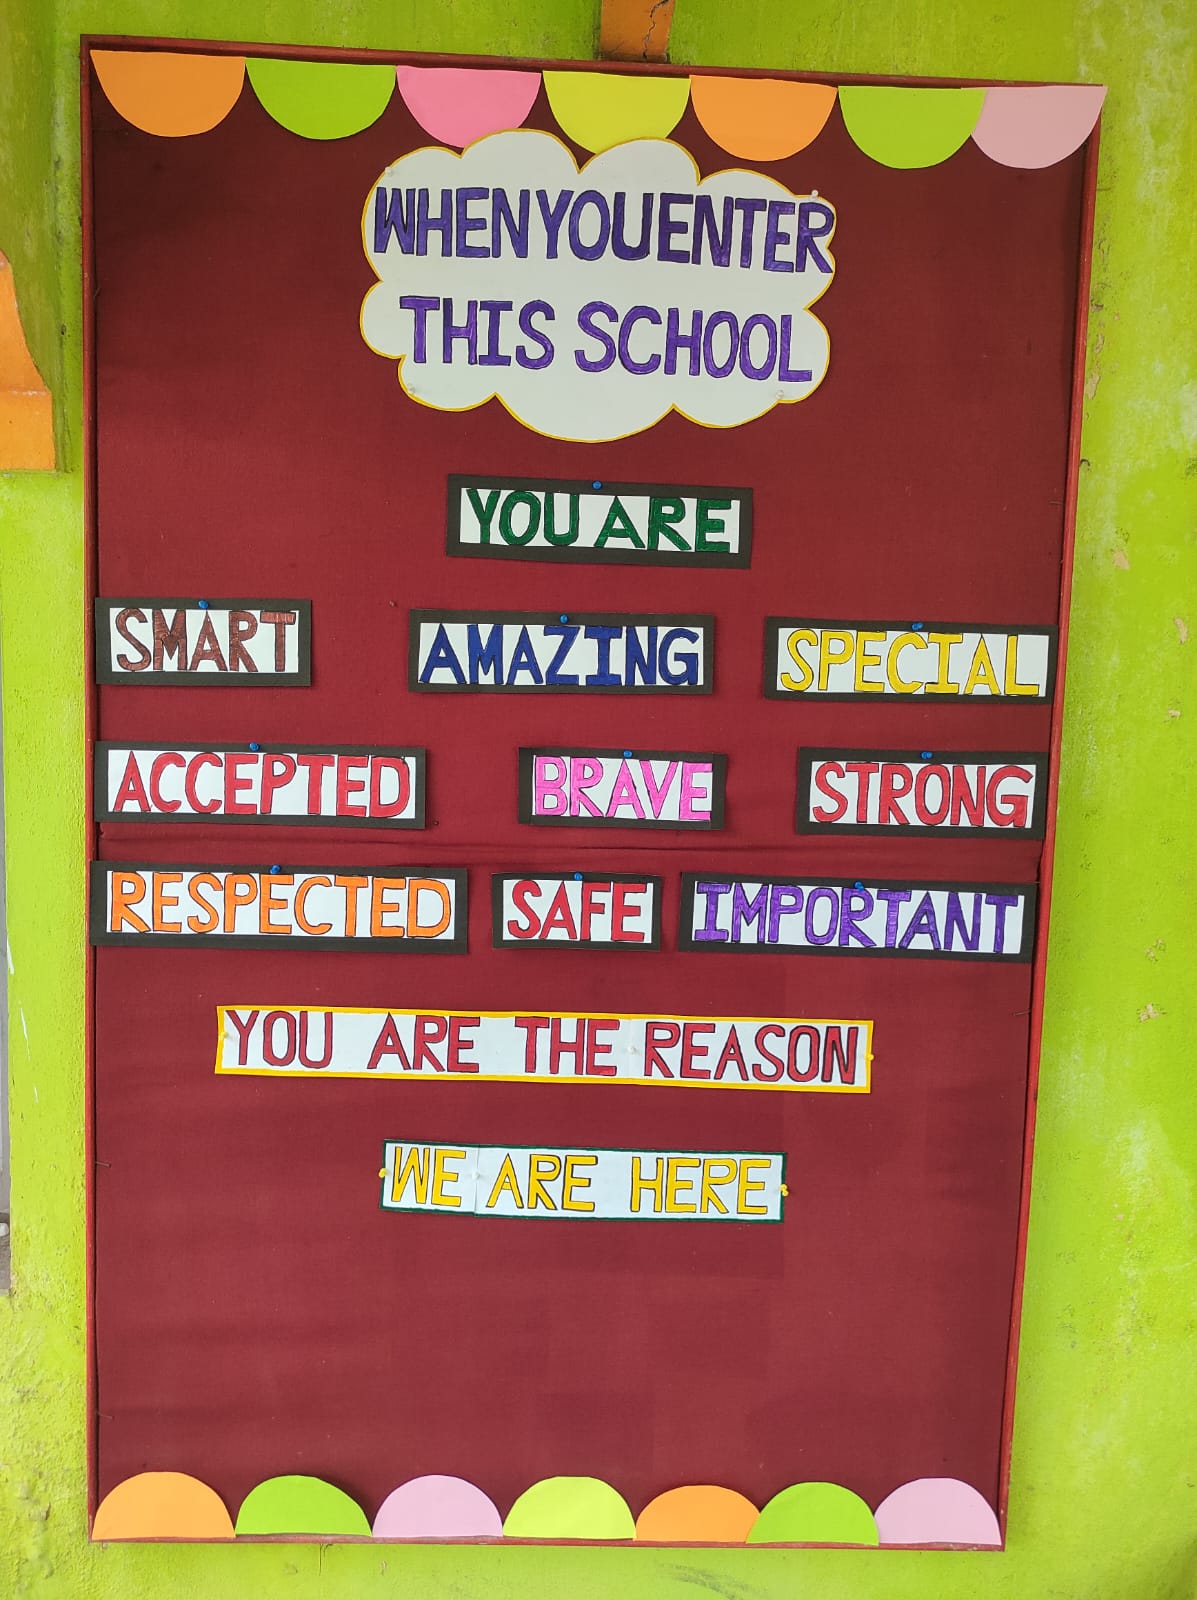 WHEN YOU ENTER
THIS SCHOOL
YOU ARE
SMART AMAZING SPECIAL
ACCEPTED BRAVE STRONG
RESPECTED SAFE IMPORTANT
YOU ARE THE REASON
WE ARE HERE